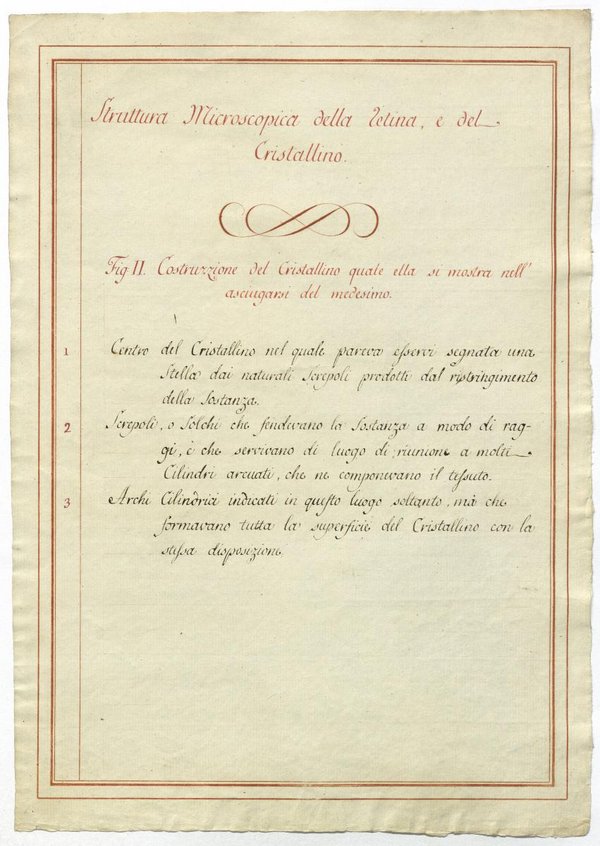 Struttura Microscopica della Retina, e del
Cristallino.
Fig II. Costruzzione del Cristallino quale ella si mostra nell'
asciugarsi del medesimo.
1 Centro del Cristallino nel quale pareva esservi segnata una
Stella dai naturali Screpoli prodotti dal restringimento
della Sostanza.
2 Screpoli, o Solchi che fendevano la Sostanza a modo di rag-
gi, è che servivano di luogo di riunione a molti
Cilindri arcuati, che ne componevano il tessuto.
3 Archi Cilindrici indicati in questo luogo soltanto, mà che
formavano tutta la superficie del Cristallino con la
stessa disposizione.